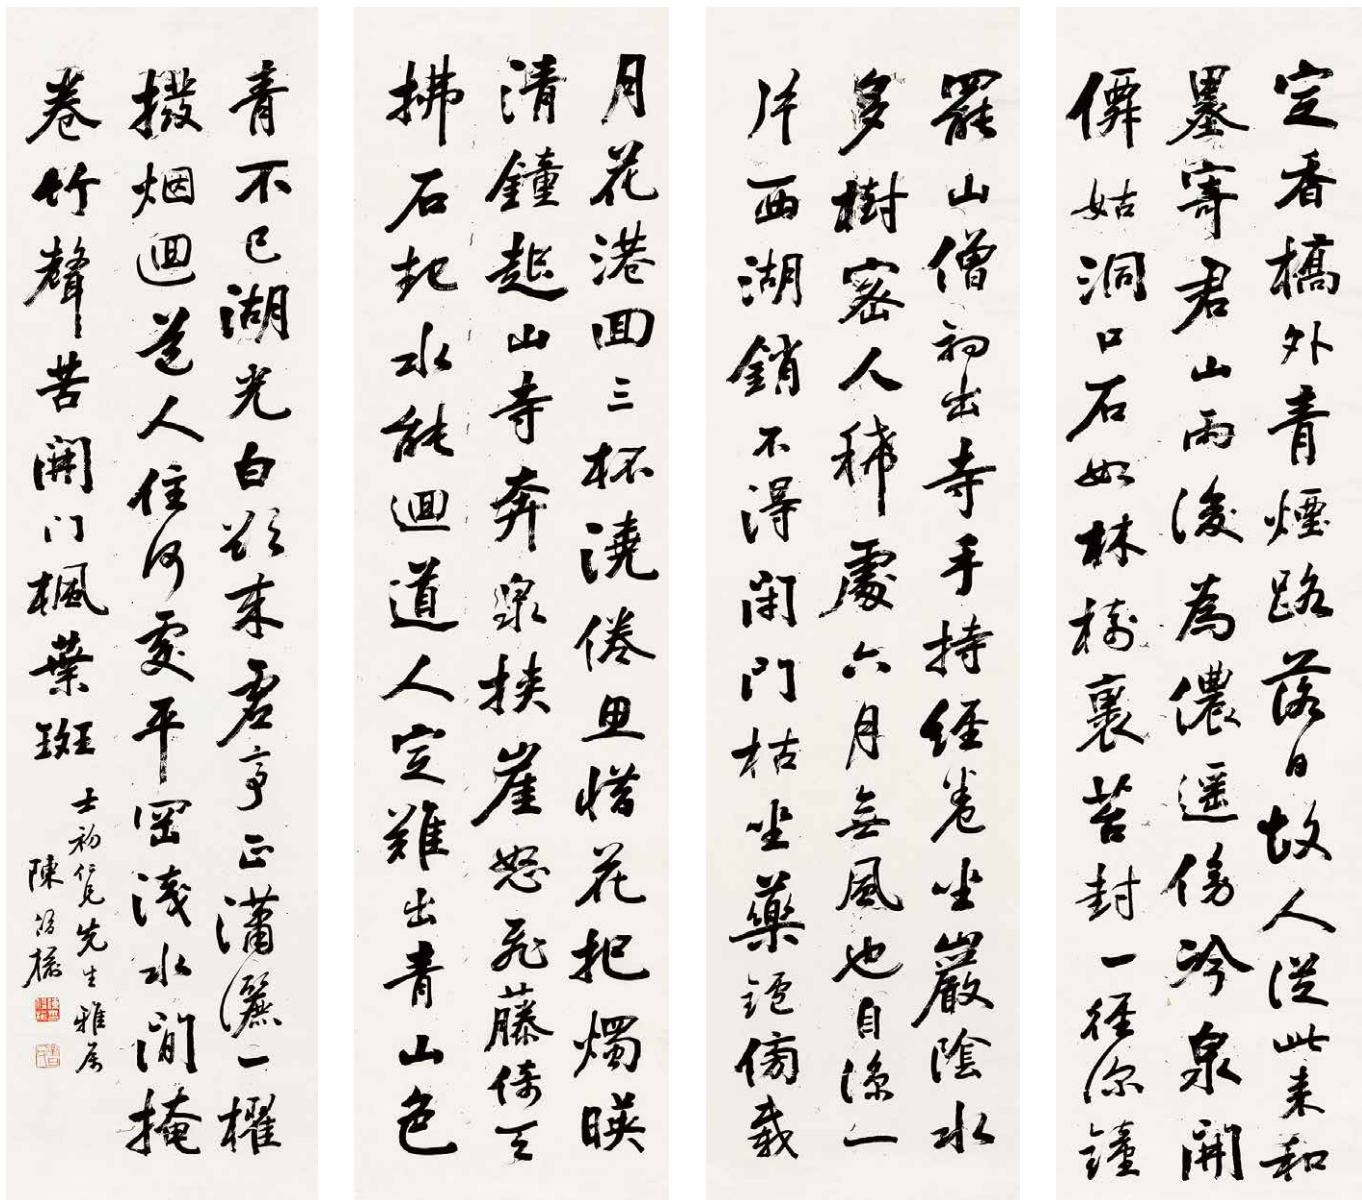 定香橋外青煙路落日故人從此來和
墨寄君山雨後為儂遥傍冷泉開
僊姑洞口石如林樹裏苔封一徑深鐘
罷山僧初出寺手持經卷坐巖陰水
多樹密人稀處六月無風也自涼一
片西湖銷不得閉門枯坐藥鑪傍載
月花港回三杯澆倦思惜花把燭映
清鐘起山寺奔泉挾崖怒飛藤倚天
拂石起水能迴道人定難出青山色
青不已湖光白欲來君亭正瀟灑一櫂
撥烟迴道人住何處平岡淺水間掩
卷竹聲苦開門楓葉斑
士初仁兄先生雅屬
陳